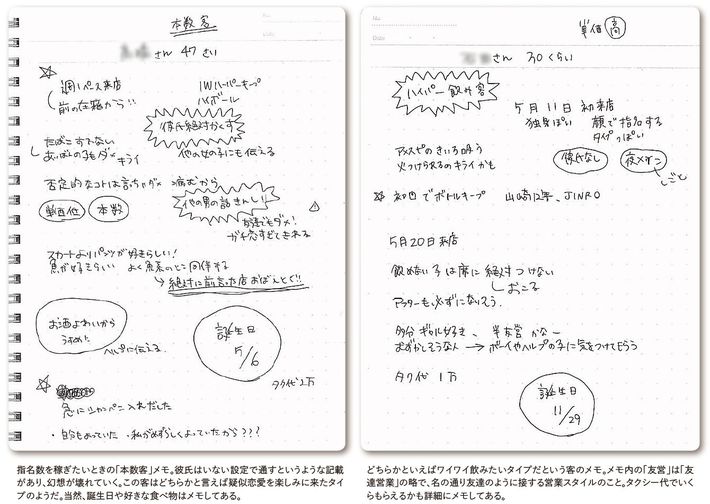 本数客
さん 47さい
週1ペース来店
前の在籍から!!
1Wハーパーキープ
ハイボール
彼氏絶対かくす
他の女の子にも伝える
たばこすわない
あいばんの子もダメ
キライ
否定的なコトは言っちゃダメ 病むから
単価低
本数
他の男の話きんし!
友達でもダメ!
ガチ恋すぎてきれる
スカートよりパンツが好きらしい!
魚が好きらしい よく魚系のとこ同伴する
絶対に前言った店おぼえとく!!
お酒よわいから
うすめ!
ヘルプに伝える
誕生日
5/6
タク代2万
急にシャンパン入れだした
・自分もよっていた ・私がめずらしくよっていたから???
単価 高
さん 30くらい
ハイパー飲み客
5月11日 初来店
独身ぽい 顔で指名する
タイプっぽい
アメスピのきいろ吸う
火つけられるのキライかも
彼氏なし
夜メイン
しごと
初回でボトルキープ 山崎12年、JINRO
5月20日来店
飲めない子は席に絶対つけない
おこる
アフターも必ずになりそう.
多分ギャル好き、 半友営かなー
むずかしそうな人 → ボーイやヘルプの子に気をつけてもらう
タク代 1万
誕生日
11/29
指名数を稼ぎたいときの「本数客」メモ。彼氏はいない設定で通すというような記載
があり、幻想が壊れていく。この客はどちらかと言えば疑似恋愛を楽しみに来たタイ
プのようだ。当然、誕生日や好きな食べ物はメモしてある。
どちらかといえばワイワイ飲みたいタイプだという客のメモ。メモ内の「友営」は「友
達営業」の略で、名の通り友達のように接する営業スタイルのこと。タクシー代でいく
らもらえるかも詳細にメモしてある。